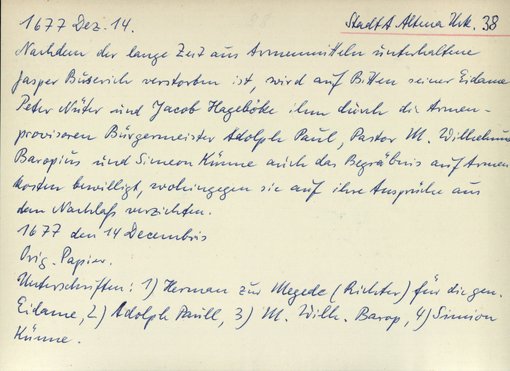 1677 Dez. 14. StadtA Altena Urk. 38
Nachdem der lange Zeit aus Armenmitteln unterhaltene
Jasper Buserich verstorben ist, wird auf Bitten seiner Eidame
Peter Nüter und Jacob Hageböke ihm durch die Armen-
provisoren Bürgermeister Adolph Paul, Pastor M. Wilhelmus
Baropius und Simeon Künne auch das Begräbnis auf Armen
kosten bewilligt, wohingegen sie auf ihre Ansprüche aus
dem Nachlaß verzichten.
1677 den 14 Decembris
Orig. Papier.
Unterschriften: 1) Herman zur Megede (Richter) für die gen.
Eidame, 2) Adolph Paull, 3) M. Wilh. Barop, 4) Simion
Künne.